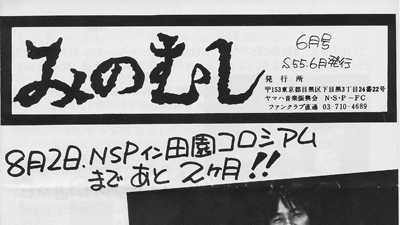 みのむし
6月号
S.55.6月発行
発行所
〒153東京都目黒区下目黒3丁目24番22号
ヤマハ音楽振興会 N・S・P-FC
ファンクラブ直通 03-710-4689
8月2日.NSPイン田園コロシアム
まであと2ヶ月!!